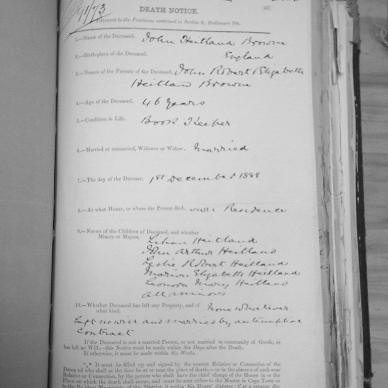 11/73
DEATH NOTICE.
Pursuant to the Provisions contained in Section 9, Ordinance 104.
1.—Name of the Deceased. John Heitland Brown
2.—Birthplace of the Deceased. England
3.—Names of the Parents of the Deceased. John Robert & Elizabeth
Heitland Brown
4.—Age of the Deceased. 46 Years
5.—Condition in Life. Book Keeper
6.—Married or unmarried, Widower or Widow. Married
7.—The day of the Decease. 1st December 1888
8.—At what House, or where the Person died. Residence
9.—Names of the Children of Deceased, and whether
Minors or Majors. Lilian Heitland
Arthur Heitland
Leslie Robert Heitland
Marion Elizabeth Heitland
Leonora Mary Heitland
All minors
10.—Whether Deceased has left any Property, and of
what kind. None whatever
Left no will and married by antenuptial
Contract
If the Deceased is not a married Person, or not married in community of Goods, or
has left no Will,—this Notice must be made within Six Days after the Death.
If otherwise, it must be made within Six Weeks.
It must be filled up and signed by the nearest Relative or Connection of the